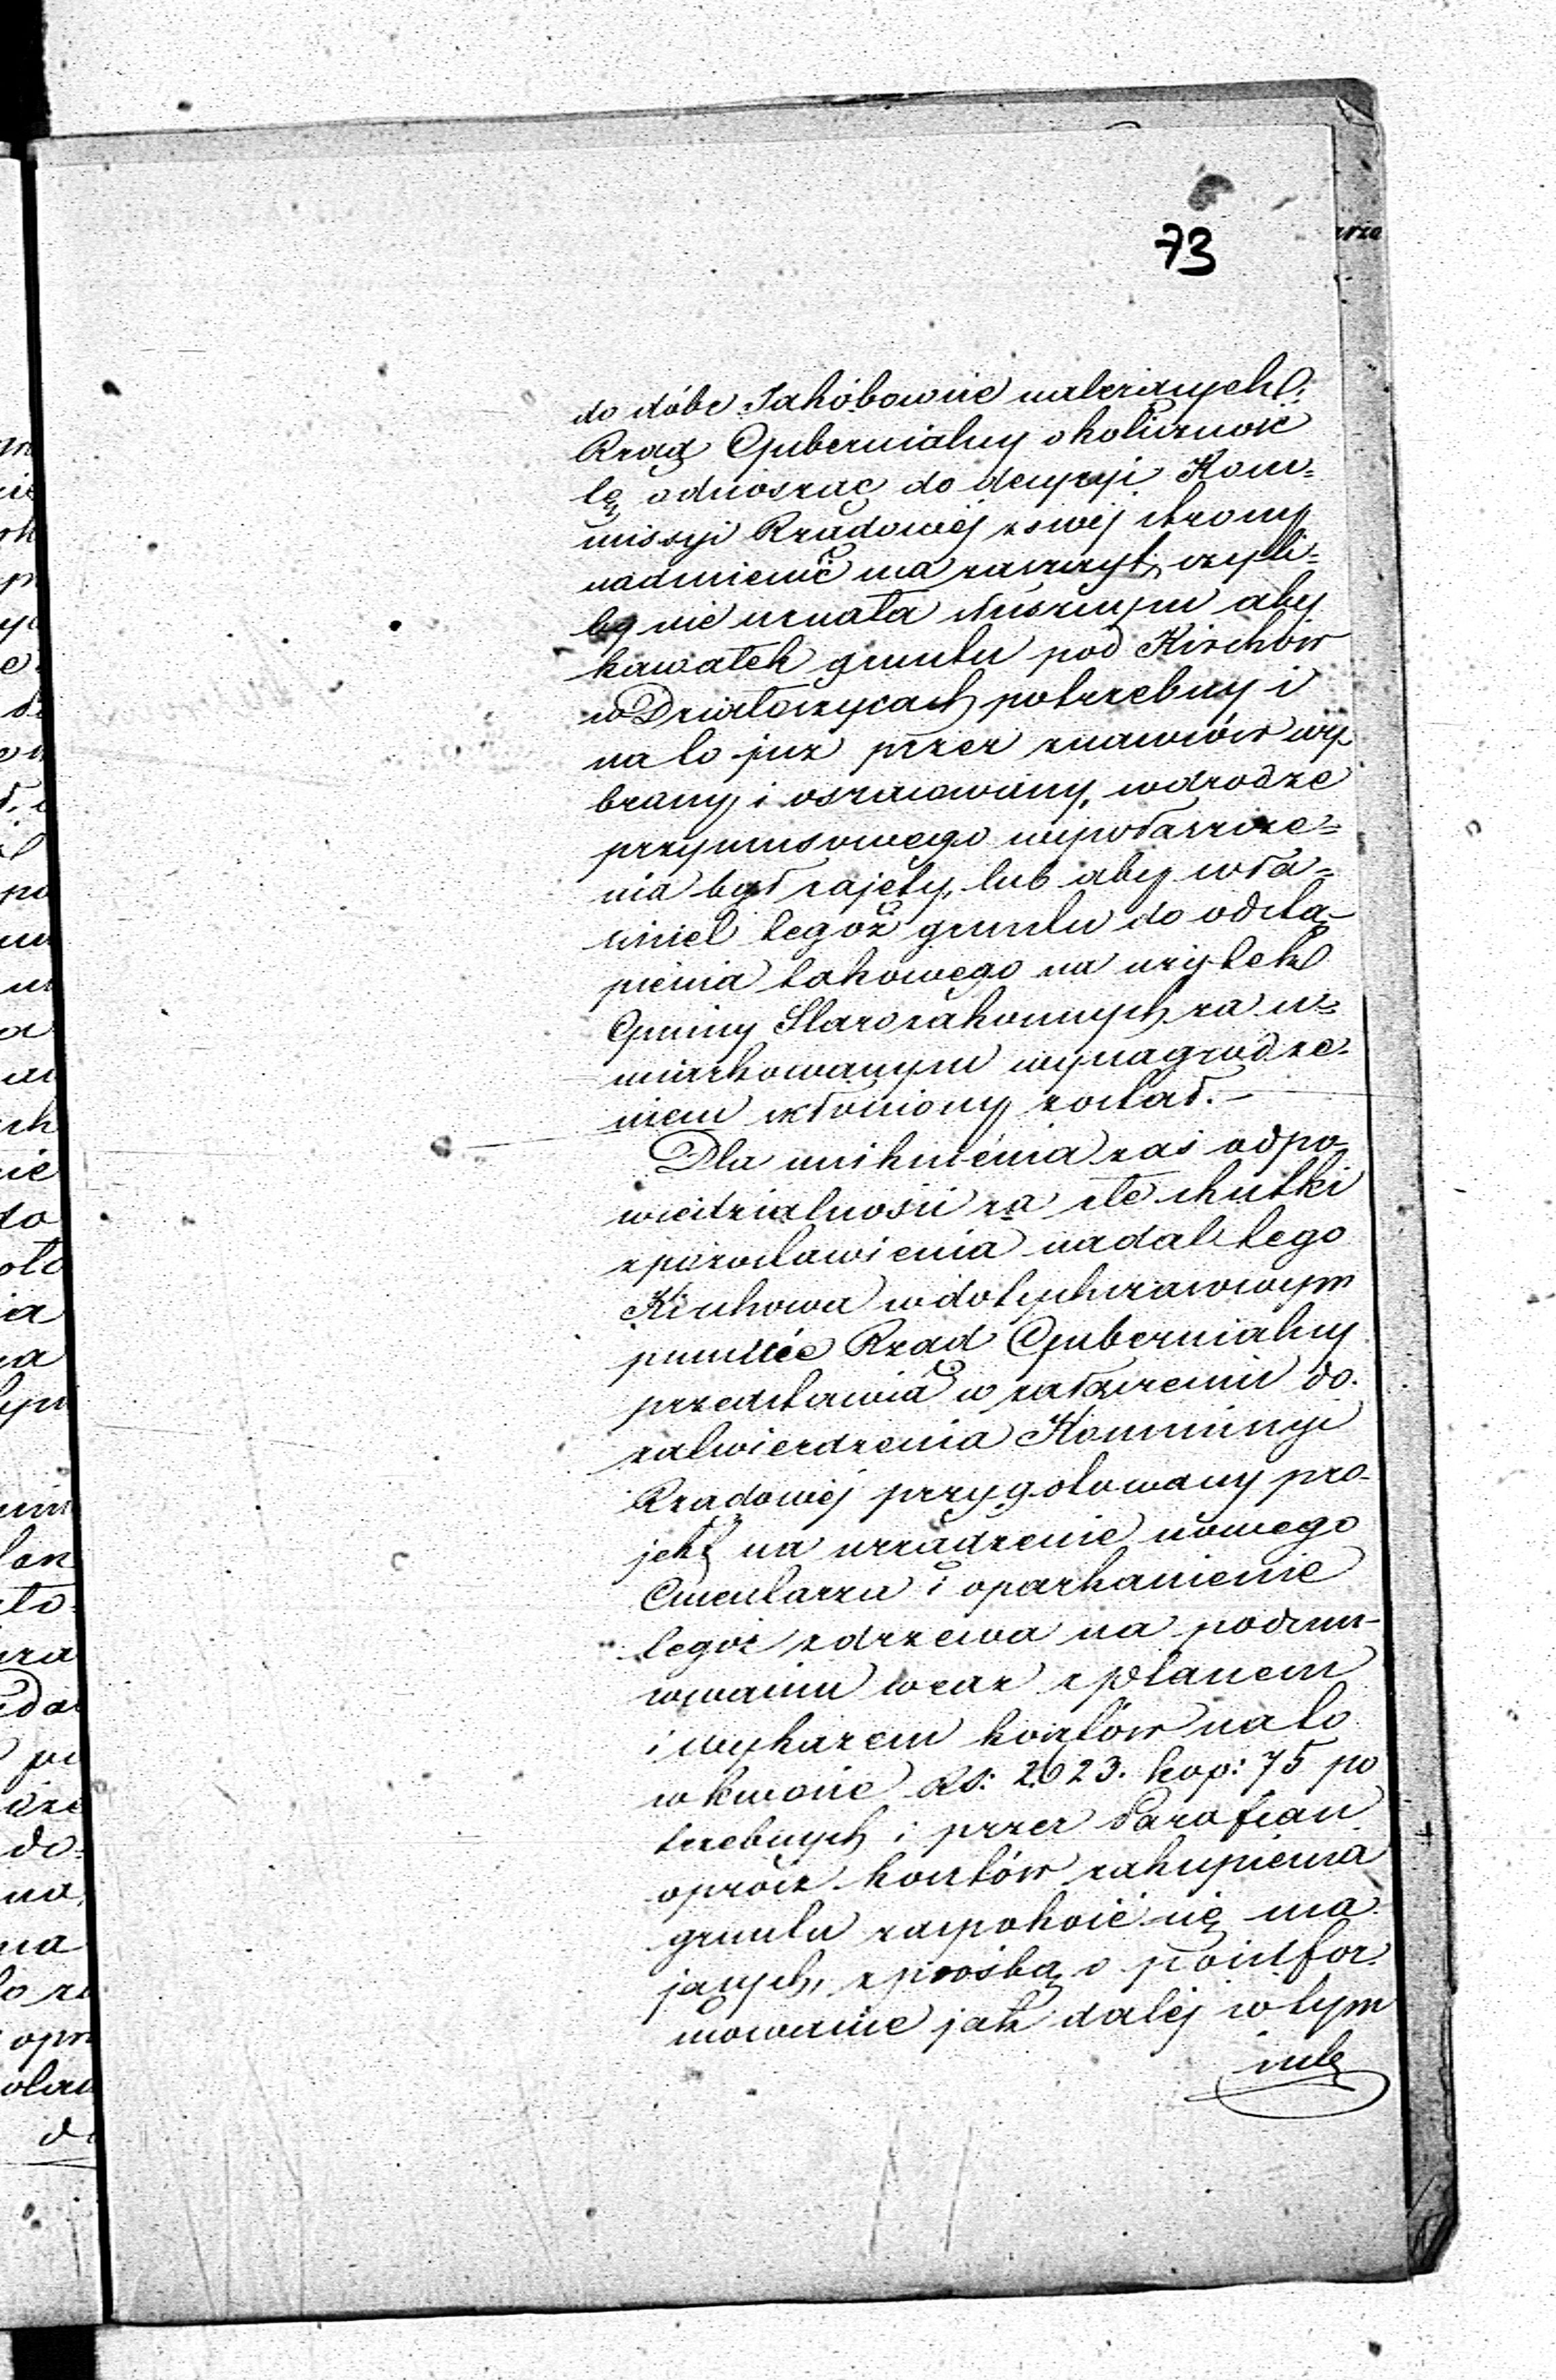 73
do dóbr Jakóbowice należących.
Rząd Gubernialny okoliczność
tę odnosząc do decyzyi Kom=
missyi Rządowéj z swéj strony
nadmienić ma zaszczyt, czyli=
by nie uznała słusznym aby
kawałek gruntu pod Kirchów
w Działoszycach potrzebny i
na to już przez znawców wy
brany i oszacowany, w drodze
przymusowego wywłaszcze=
nia był zajęty, lub aby wła=
ściciel tegoż gruntu do odstą-
pienia takowego na użytek
Gminy Starozakonnych za u=
miarkowanym wynagrodze-
niem skłoniony został.-
Dla uniknienia zaś odpo-
wiedzialności za złe skutki
z pozostawienia nadal tego
Kirchowa w dotychczasowym
punkcie Rząd Gubernialny
przedstawia w załączeniu do
zatwierdzenia Kommissyi
Rządowéj przygotowany pro-
jekt na urządzenie nowego
Cmentarza i oparkanienie
tegoż z drzewa na podmu-
rowaniu wraz z planem
i wykazem kosztów na to
w kwocie Rs: 2,623. kop: 75 po
trzebnych i przez Parafian
oprócz kosztów zakupienia
gruntu zaspokoić się ma
jących, z prośbą o poinfor-
mowanie jak daléj w tym